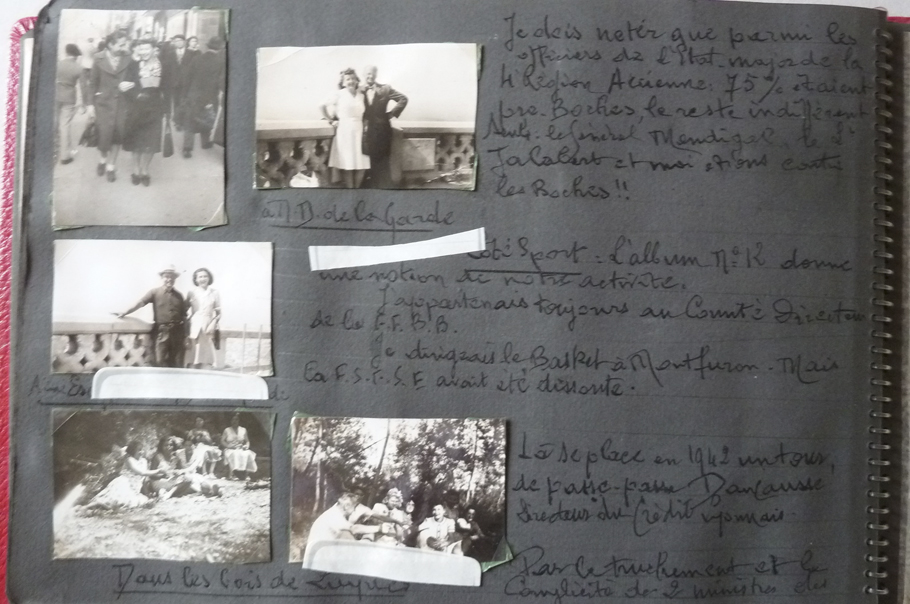 Je dois noter que parmi les
officiers de l'Etat-major de la
4e Région Aérienne, 75% étaient
pro-Boches, le reste indifférent
Seuls le Général Mendigal, le
Jalabert et moi étions contre
les Boches!!
à N.D. de la Garde
Côté Sport = L'album N° 12 donne
une notion de notre activité.
J'appartenais toujours au Comité Directeur
de la F.F.B.B.
Je dirigeais le Basket à Montfuron. Mais
la F.S.F.S.F avait été dissoute.
Là se place en 1942 un tour
de passe-passe Dancausse
directeur du Crédit Lyonnais.
Dans les bois de Luynes
Par le truchement et la
Complicité de 2 ministres des